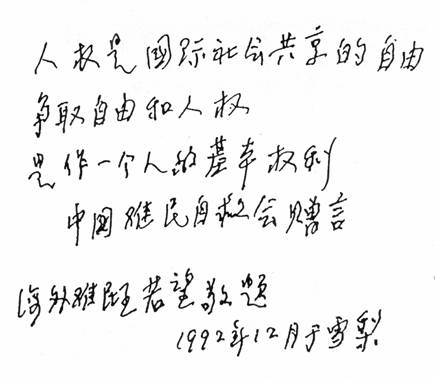 人权是國际社会共享的自由
争取自由和人权
是作一个人的基本权利
中國难民自救会赠言
海外难民王若望敬题
1992年12月于雪梨